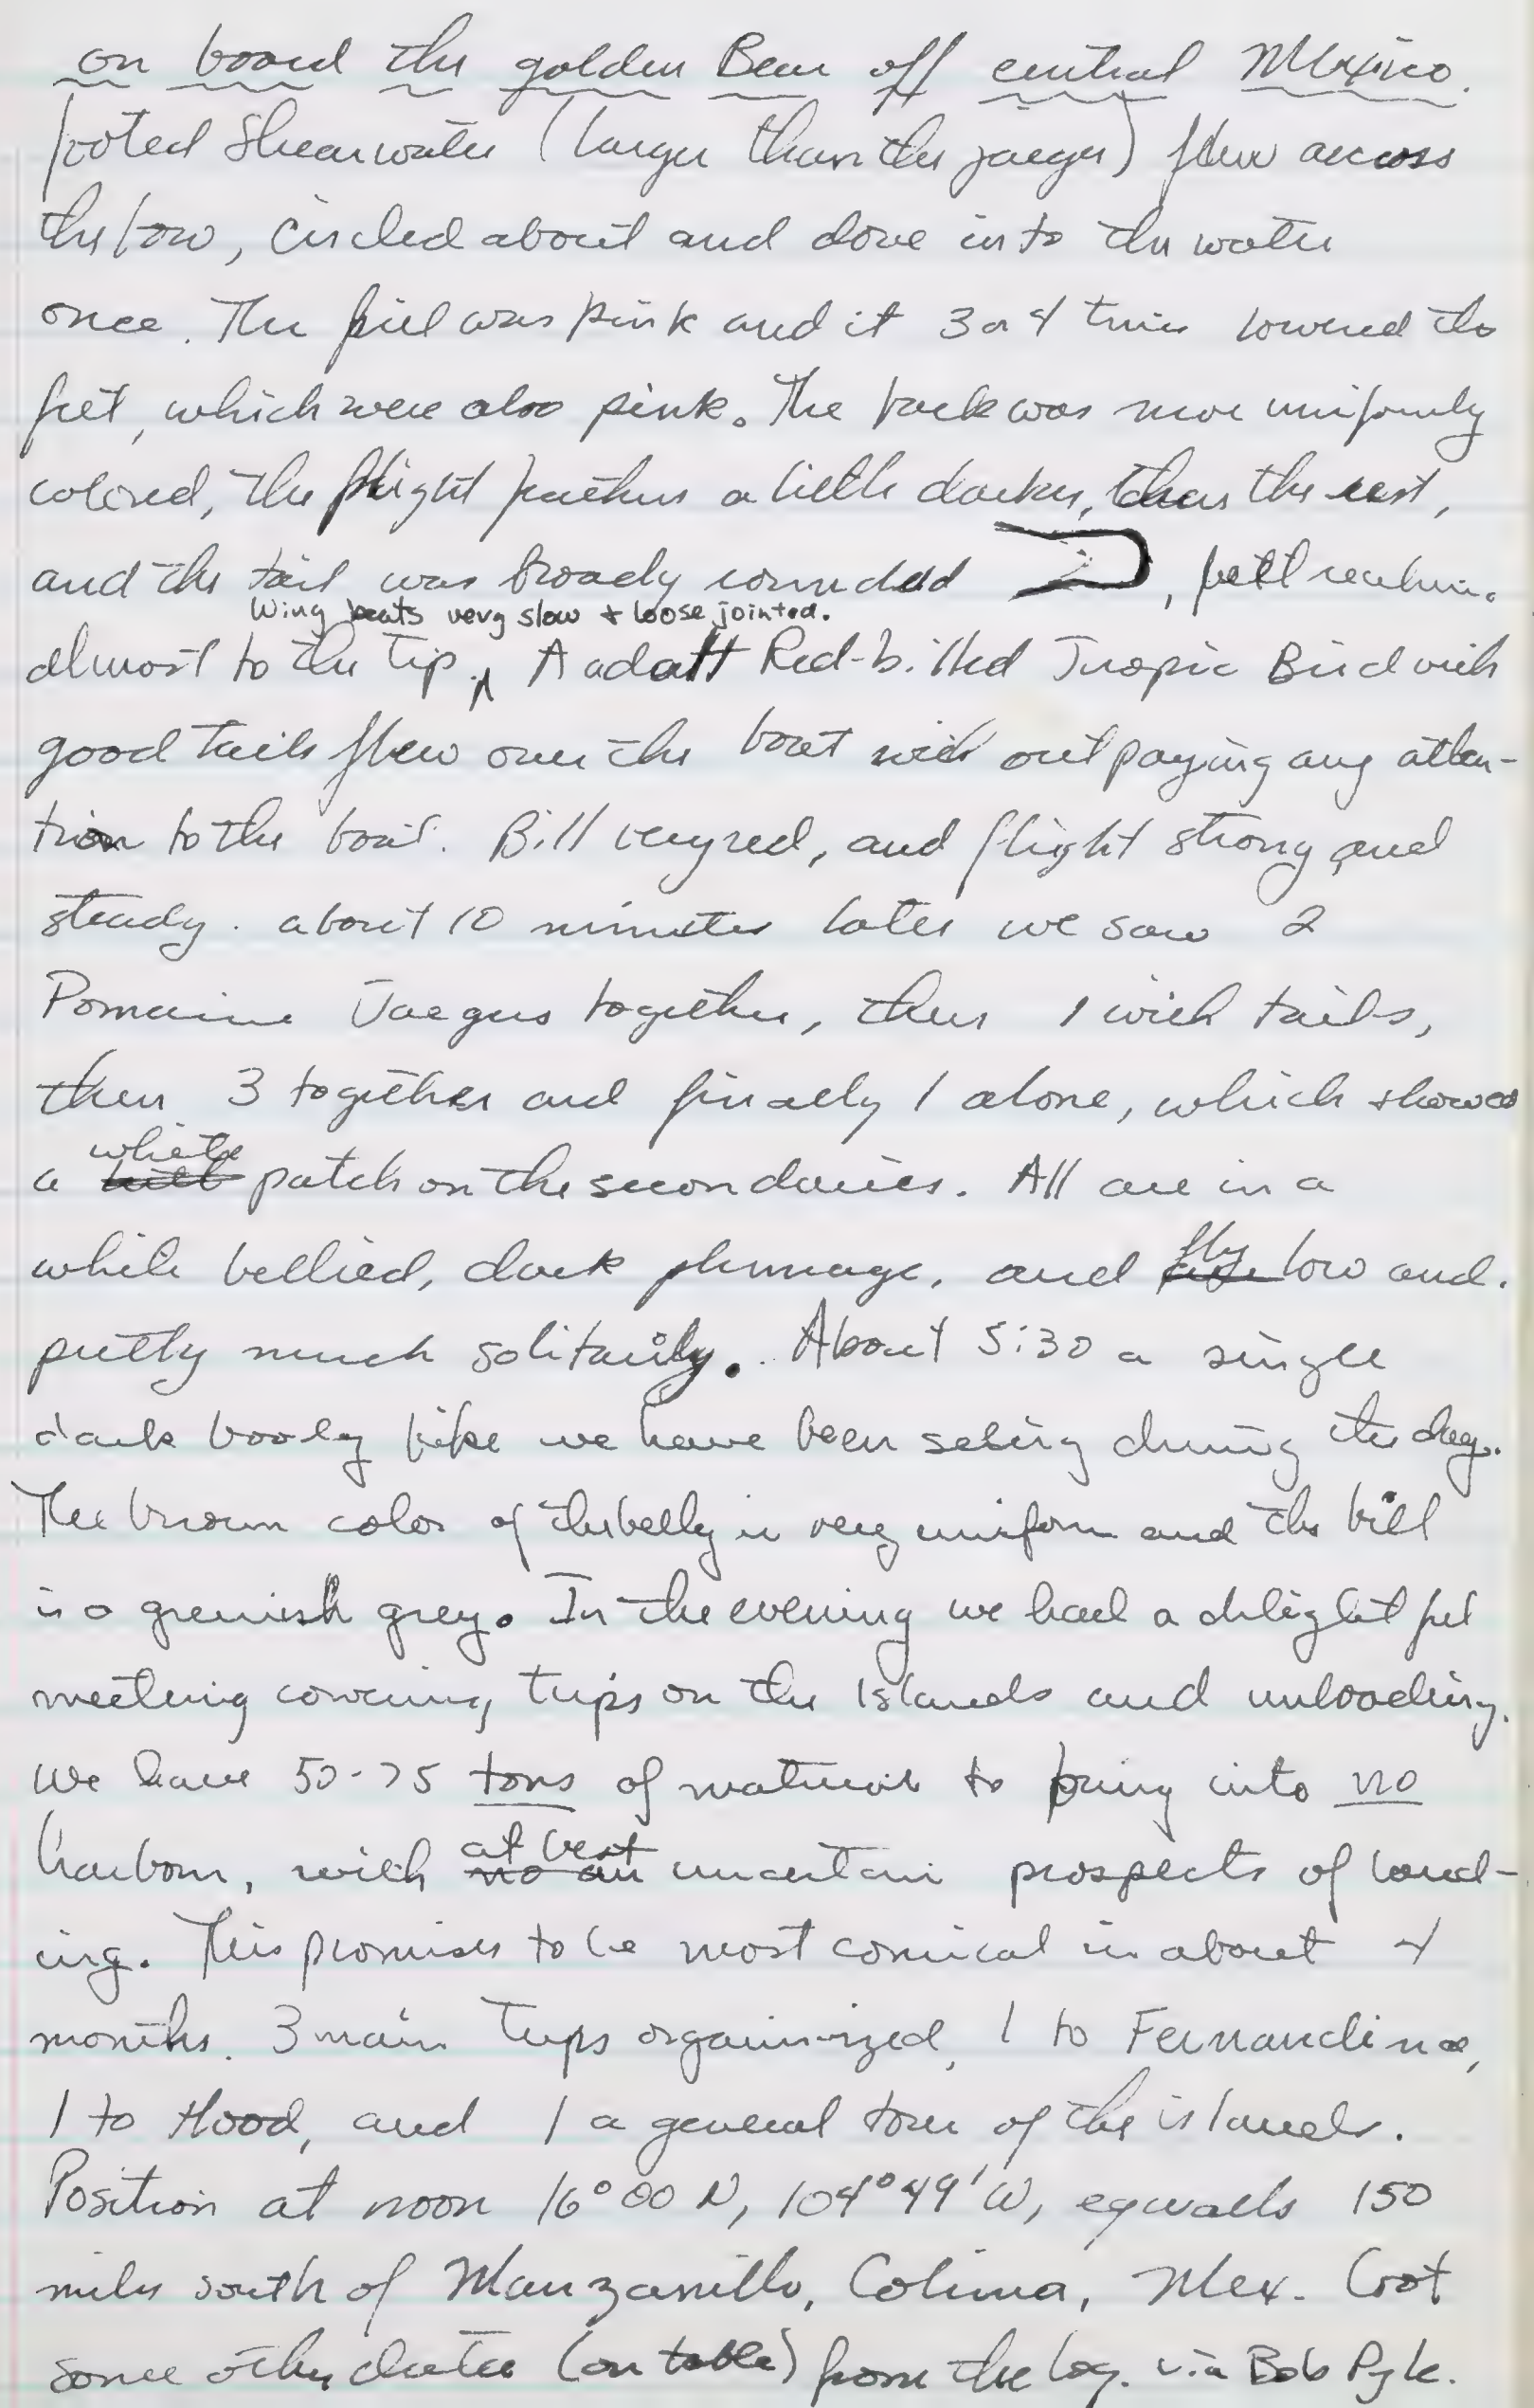 on board the golden Bear off central Mexico.
footed Shearwater (larger than the jaeger) flew across
the bow, circled about and dove into the water
once. The bill was pink and it 3 or 4 times lowered the
feet, which were also pink. The back was more uniformly
colored, the flight feathers a little darker, than the rest,
and the tail was broadly rounded , feet reaching
Wing beats very slow + loose jointed.
almost to the tip. A adult Red-billed Tropic Bird with
good tails flew over the boat with out paying any atten-
tion to the boat. Bill very red, and flight strong and
steady. about 10 minutes later we saw 2
Pomarine Jaegers together, then 1 with tails,
then 3 together and finally 1 alone, which showed
white
a patch on the secondaries. All are in a
fly
white bellied, dark plumage, and low and
pretty much solitarily. About 5:30 a single
dark booby like we have been seeing during the day.
The brown color of the belly is very uniform and the bill
is a greenish grey. In the evening we had a delightful
meeting covering trips on the Islands and unloading.
We have 50-75 tons of material to bring into no
at best
harbour, with no an uncertain prospects of land-
ing. This promises to be most comical in about 4
months. 3 main trips organized, 1 to Fernandina,
1 to Hood, and 1 a general tour of the islands.
Position at noon 16°00 N, 104°49'W, equalls 150
miles south of Manzanillo, Colima, Mex. Got
some other data (on table) from the log. via Bob Pyle.